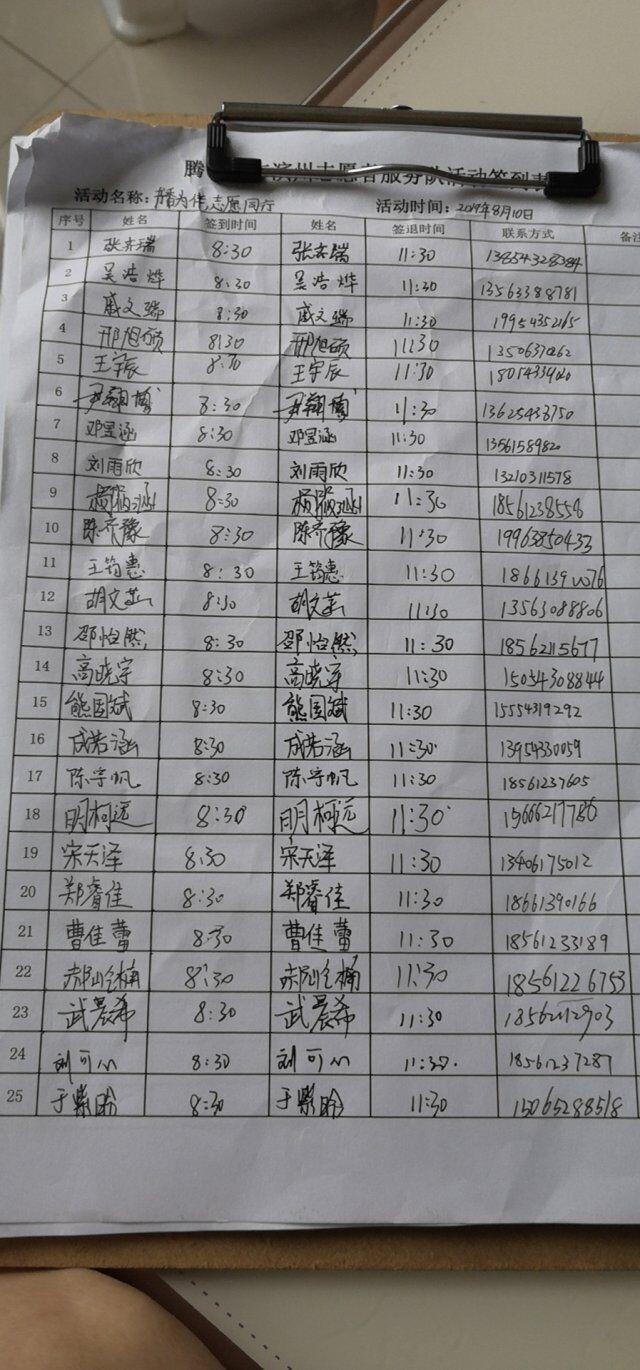 腾 滨州志愿者服务队活动签到表
活动名称: 志愿同行 活动时间: 2019年8月10日
序号 姓名 签到时间 姓名 签退时间 联系方式 备注
1 8:30 11:30
2 吴浩烨 8:30 吴浩烨 11:30 13563388781
3 戚文瑞 8:30 戚文瑞 11:30 19954352165
4 邢旭硕 8:30 邢旭硕 11:30
5 王宇辰 8:30 王宇辰 11:30
6 尹翱博 8:30 尹翱博 11:30 13625433750
7 邓昱涵 8:30 邓昱涵 11:30
8 刘雨欣 8:30 刘雨欣 11:30 13210311578
9 8:30 11:30 18561238558
10 陈齐豫 8:30 陈齐豫 11:30 19963850433
11 王筠惠 8:30 王筠惠 11:30
12 胡文 8:30 胡文 11:30 13563088806
13 邵怡然 8:30 邵怡然 11:30 18562115677
14 高晓宇 8:30 高晓宇 11:30 15054308844
15 熊国斌 8:30 熊国斌 11:30 15554319292
16 成若涵 8:30 成若涵 11:30 13954330059
17 陈宇帆 8:30 陈宇帆 11:30 18561237605
18 明柯远 8:30 明柯远 11:30 15666217786
19 宋天泽 8:30 宋天泽 11:30 13406175012
20 郑睿佳 8:30 郑睿佳 11:30 18661390166
21 曹佳蕾 8:30 曹佳蕾 11:30 18561233189
22 8:30 11:30 18561226753
23 武晨希 8:30 武晨希 11:30 18562112903
24 刘可心 8:30 刘可心 11:30 18561237287
25 于紫晗 8:30 于紫晗 11:30 15065288518